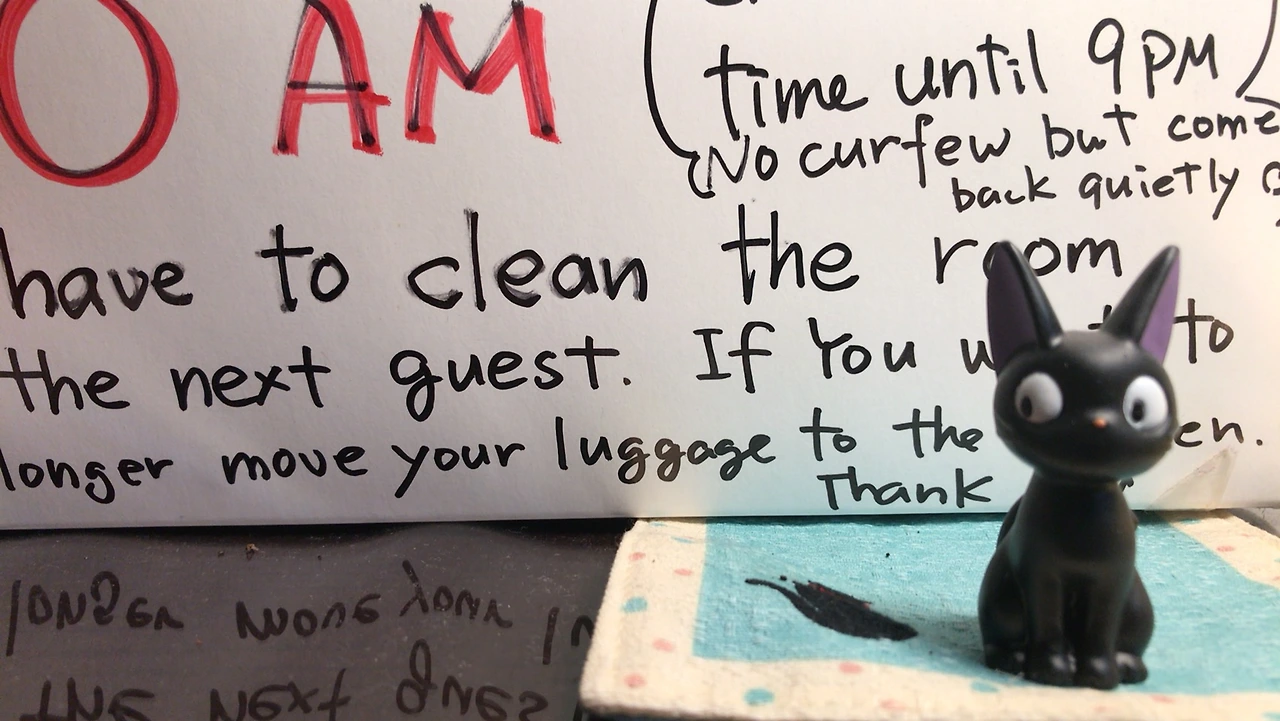 0 AM
time until 9PM
No curfew but come
back quietly
have to clean the room
the next guest. If You to
longer move your luggage to the en.
Thank